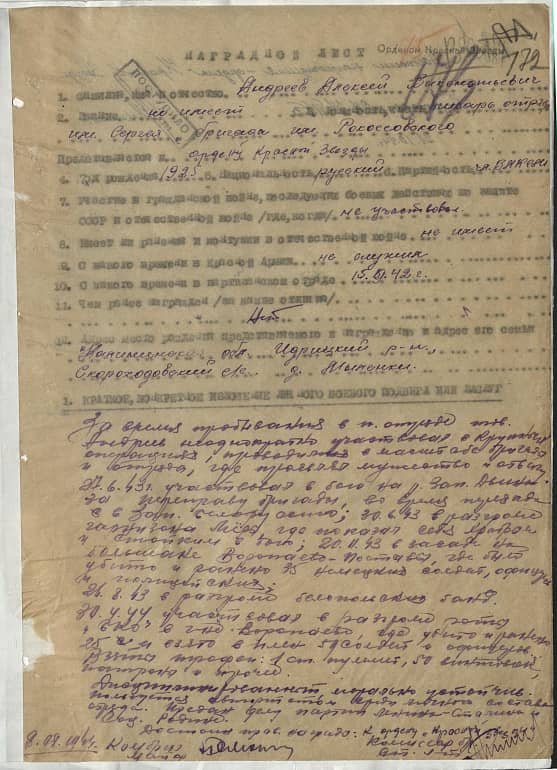 172
НАГРАДНОЙ ЛИСТ Орденом Красной Звезды
1. ФАМИЛИЯ, ИМЯ и ОТЧЕСТВО Андреев Алексей
2. Звание не имеет 3. Должность, часть
им. Сергея бригада им. Рокоссовского
Представляется к ордену Красной Звезды
4. Год рождения 1925 5. Национальность русский 6. Партийность чл. ВЛКСМ
7. Участие в гражданской войне, последующих боевых действиях по защите
СССР и отечественной войне /где, когда/ не участвовал
8. Имеет ли ранения и контузии в отечественной войне не имеет
9. С какого времени в Красной Армии не служил
10. С какого времени в партизанском отряде 15. 42 г.
11. Чем ранее награжден /за какие отличия/
Нет
12. Адрес место рождения представляемого к награждению и адрес его семьи
Калининская обл. Идрицкий р-н,
Скороходовский с/с. д.
1. КРАТКОЕ, КОНКРЕТНОЕ ИЗЛОЖЕНИЕ ЛИЧНОГО БОЕВОГО ПОДВИГА ИЛИ ЗАСЛУГ
За время пребывания в п. отряде тов.
Андреев неоднократно участвовал в крупных
операциях, проводимых в масштабе бригады
и отряда, где проявлял мужество и отвагу.
6.43г. участвовал в бою на р. Зап. Двина
за переправу бригады, во время перехода
в Зап. Белоруссию; 30.6.43 в разгроме
гарнизона где показал себя храбрым
и стойким в бою; 20. 43 в засаде на
большаке Воропаево-Поставы, где было
убито и ранено 35 немецких солдат, офицеров
и полицейских;
8.43 в разгроме белопольских банд.
30.4.44 участвовал в разгроме роты
в г-не Воропаево, где убито и ранено
25 ч. и взято в плен солдат и офицеров.
Взяты трофеи: 1 ст. пулемет, 50 винтовок,
патроны и прочее.
Дисциплинирован, морально устойчив.
пользуется авторитетом среди личного состава
отряда. Предан делу партии Ленина-Сталина и
Соц. Родине.
Достоин награды: к ордену "Красная Звезда"
8.07.1944 Комбриг Комиссар